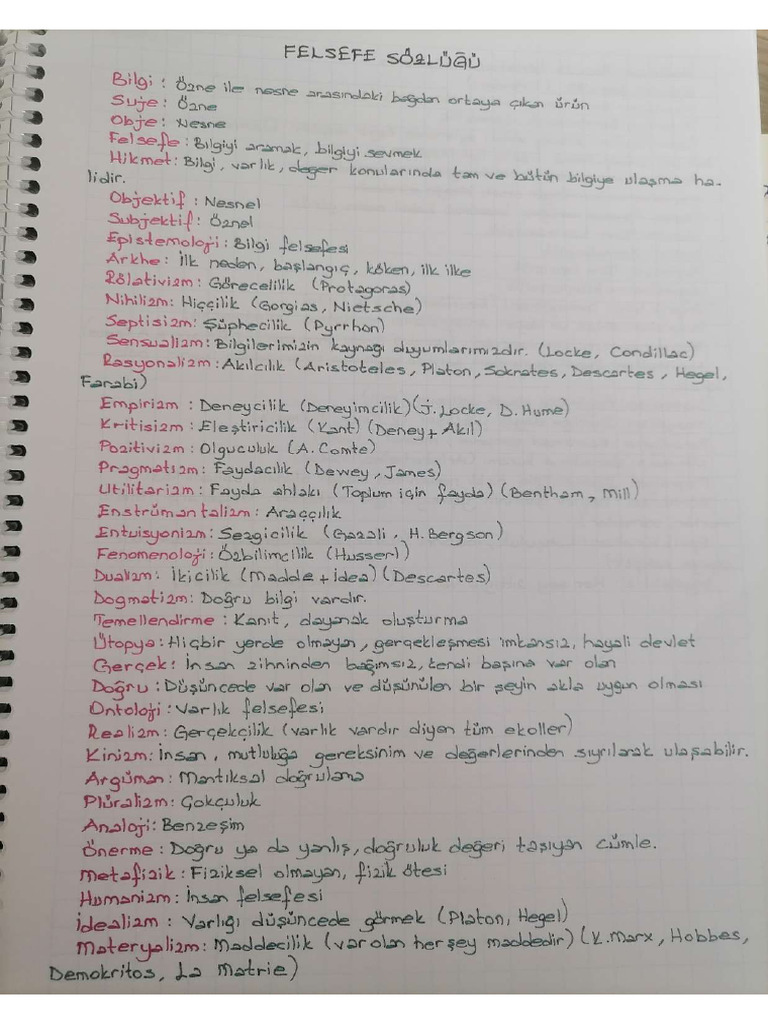 FELSEFE SÖZLÜĞÜ
Bilgi : Özne ile nesne arasındaki bağdan ortaya çıkan ürün
Suje : Özne
Obje : Nesne
Felsefe : Bilgiyi aramak, bilgiyi sevmek
Hikmet : Bilgi, varlık, değer konularında tam ve bütün bilgiye ulaşma ha-
lidir.
Objektif : Nesnel
Subjektif : Öznel
Epistemoloji : Bilgi felsefesi
Arkhe : İlk neden, başlangıç, köken, ilk ilke
Rölativizm : Görecelilik (Protagoras)
Nihilizm : Hiççilik (Gorgias, Nietsche)
Septisizm : Şüphecilik (Pyrrhon)
Sensualizm : Bilgilerimizin kaynağı duyumlarımızdır. (Locke, Condillac)
Rasyonalizm : Akılcılık (Aristoteles, Platon, Sokrates, Descartes, Hegel,
Farabi)
Empirizm : Deneycilik (Deneyimcilik) (J. Locke, D. Hume)
Kritisizm : Eleştiricilik (Kant) (Deney + Akıl)
Pozitivizm : Olguculuk (A. Comte)
Pragmatizm : Faydacılık (Dewey, James)
Utilitarizm : Fayda ahlakı (Toplum için fayda) (Bentham, Mill)
Enstrümantalizm : Araççılık
Entuisyonizm : Sezgicilik (Gazali, H. Bergson)
Fenomenoloji : Özbilimcilik (Husserl)
Dualizm : İkicilik (Madde + idea) (Descartes)
Dogmatizm : Doğru bilgi vardır.
Temellendirme : Kanıt, dayanak oluşturma
Ütopya : Hiçbir yerde olmayan, gerçekleşmesi imkansız, hayali devlet
Gerçek : İnsan zihninden bağımsız, kendi başına var olan
Doğru : Düşüncede var olan ve düşünülen bir şeyin akla uygun olması
Ontoloji : Varlık felsefesi
Realizm : Gerçekçilik (varlık vardır diyen tüm ekoller)
Kinizm : İnsan, mutluluğa gereksinim ve değerlerinden sıyrılarak ulaşabilir.
Argüman : Mantıksal doğrulama
Plüralizm : Çokçuluk
Analoji : Benzeşim
Önerme : Doğru ya da yanlış, doğruluk değeri taşıyan cümle.
Metafizik : Fiziksel olmayan, fizik ötesi
Humanizm : İnsan felsefesi
İdealizm : Varlığı düşüncede görmek (Platon, Hegel)
Materyalizm : Maddecilik (var olan her şey maddedir) (K. Marx, Hobbes,
Demokritos, La Matrie)